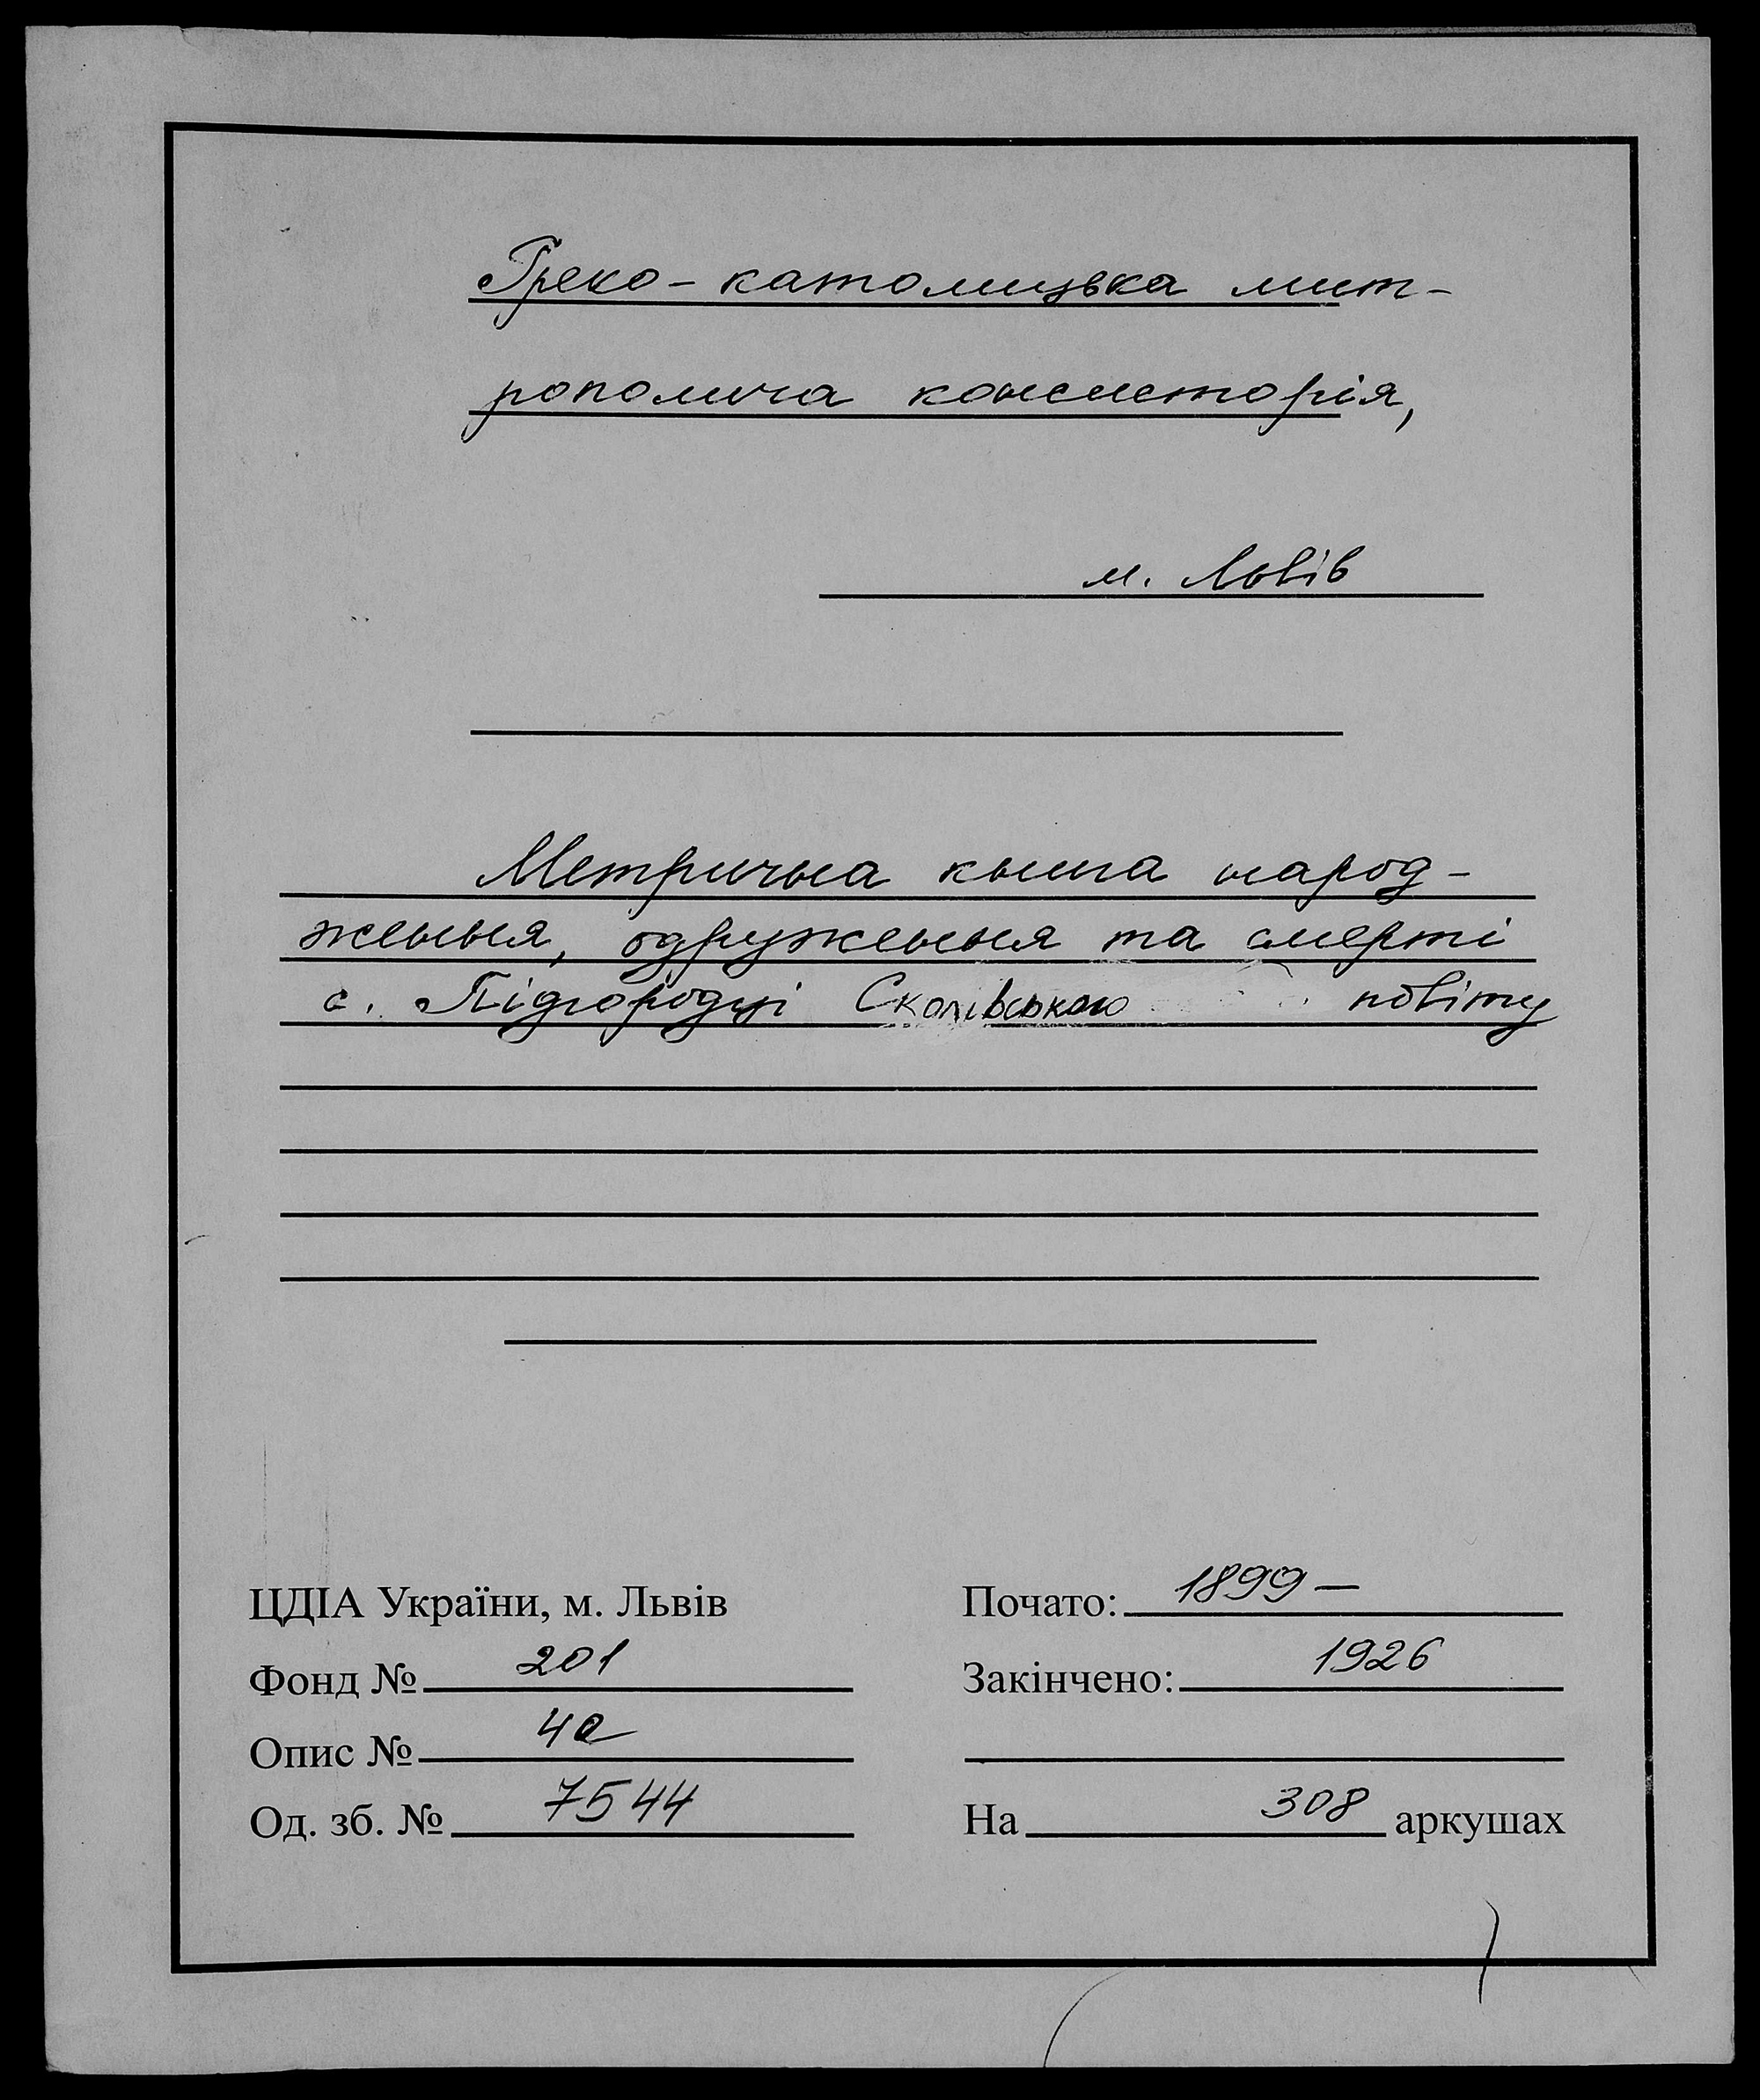 Греко-католицька мит-
рополича консисторія,
м. Львів
Метрична книга народ-
ження, одруження та смерті
с. Підгородці Сколівського повіту
ЦДІА України, м. Львів
Фонд № 201
Опис № 4а
Од. зб. № 7544
Почато: 1899 –
Закінчено: 1926
На 308 аркушах